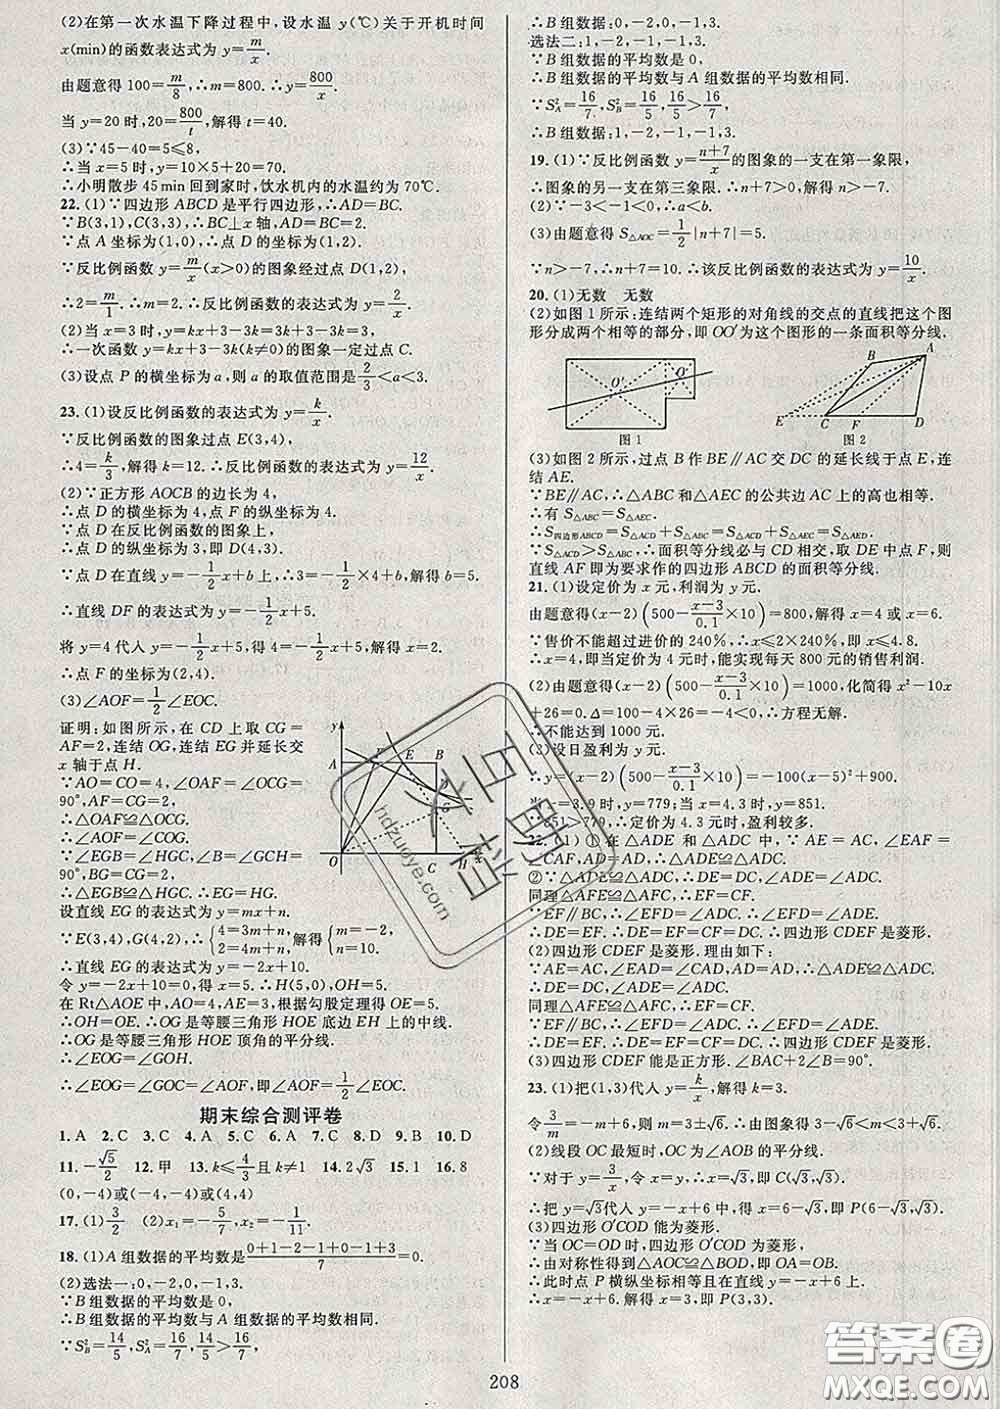 (2)在第一次水温下降过程中,设水温 y(℃)关于开机时间
x(min)的函数表达式为 y=m/x.
由题意得 100=m/8,∴m=800.∴y=800/x.
当 y=20 时,20=800/t,解得 t=40.
(3)∵45-40=5≤8,
∴当 x=5 时,y=10×5+20=70.
∴小明散步 45 min 回到家时,饮水机内的水温约为 70℃.
22.(1)∵四边形 ABCD 是平行四边形,∴AD=BC.
∵B(3,1),C(3,3),∴BC⊥x 轴,AD=BC=2.
∵点 A 坐标为(1,0),∴点 D 的坐标为(1,2).
∵反比例函数 y=m/x(x>0)的图象经过点 D(1,2),
∴2=m/1.∴m=2.∴反比例函数的表达式为 y=2/x.
(2)当 x=3 时,y=kx+3-3k=3k+3-3k=3,
∴一次函数 y=kx+3-3k(k≠0)的图象一定过点 C.
(3)设点 P 的横坐标为 a,则 a 的取值范围是2/3<a<3.
23.(1)设反比例函数的表达式为 y=k/x.
∵反比例函数的图象过点 E(3,4),
∴4=k/3,解得 k=12.∴反比例函数的表达式为 y=12/x.
(2)∵正方形 AOCB 的边长为 4,
∴点 D 的横坐标为 4,点 F 的纵坐标为 4.
∵点 D 在反比例函数的图象上,
∴点 D 的纵坐标为 3,即 D(4,3).
∵点 D 在直线 y=-1/2x+b 上,∴3=-1/2×4+b,解得 b=5.
∴直线 DF 的表达式为 y=-1/2x+5.
将 y=4 代入 y=-1/2x+5,得 4=-1/2x+5,解得 x=2.
∴点 F 的坐标为(2,4).
(3)∠AOF=1/2∠EOC.
证明:如图所示,在 CD 上取 CG=
AF=2,连结 OG,连结 EG 并延长交
x 轴于点 H.
∵AO=CO=4,∠OAF=∠OCG=
90°,AF=CG=2,
∴△OAF≌△OCG.
∴∠AOF=∠COG.
∵∠EGB=∠HGC,∠B=∠GCH=
90°,BG=CG=2,
∴△EGB≌△HGC.∴EG=HG.
设直线 EG 的表达式为 y=mx+n.
∵E(3,4),G(4,2),∴{4=3m+n, 2=4m+n. 解得{m=-2, n=10.
∴直线 EG 的表达式为 y=-2x+10.
令 y=-2x+10=0,得 x=5.∴H(5,0),OH=5.
在 Rt△AOE 中,AO=4,AE=3,根据勾股定理得 OE=5.
∴OH=OE.∴OG 是等腰三角形 HOE 底边 EH 上的中线.
∴OG 是等腰三角形 HOE 顶角的平分线.
∴∠EOG=∠GOH.
∴∠EOG=∠GOC=∠AOF,即∠AOF=1/2∠EOC.
y
A
F
E
B
D
G
O
C
H
x
期末综合测评卷
1.A 2.C 3.C 4.A 5.C 6.A 7.C 8.D 9.B 10.D
11.-√5/2 12.甲 13.k≤4/3且 k≠1 14.2√3 15.1 16.8
(0,-4)或(-4,-4)或(4,4)
17.(1)3/2 (2)x₁=-5/7,x₂=-1/11.
18.(1)A 组数据的平均数是(0+1-2-1+0-1+3)/7=0.
(2)选法一:0,-2,0,-1,3.
∵B 组数据的平均数是 0,
∴B 组数据的平均数与 A 组数据的平均数相同.
∵S²B=14/5,S²A=16/7,14/5>16/7,
∴B 组数据:0,-2,0,-1,3.
选法二:1,-2,-1,-1,3.
∵B 组数据的平均数是 0,
∴B 组数据的平均数与 A 组数据的平均数相同.
∵S²A=16/7,S²B=16/5,16/5>16/7,
∴B 组数据:1,-2,-1,-1,3.
19.(1)∵反比例函数 y=(n+7)/x的图象的一支在第一象限,
∴图象的另一支在第三象限.∴n+7>0,解得 n>-7.
(2)∵-3<-1<0,∴a<b.
(3)由题意得 S△AOC=1/2|n+7|=5.
∵n>-7,∴n+7=10.∴该反比例函数的表达式为 y=10/x.
20.(1)无数 无数
(2)如图 1 所示:连结两个矩形的对角线的交点的直线把这个图
形分成两个相等的部分,即 OO′为这个图形的一条面积等分线.
O′
O
图 1
A
B
E
C
F
D
图 2
(3)如图 2 所示,过点 B 作 BE∥AC 交 DC 的延长线于点 E,连
结 AE.
∵BE∥AC,∴△ABC 和△AEC 的公共边 AC 上的高也相等.
∴有 S△ABC=S△AEC.
∴S四边形ABCD=S△ACD+S△ABC=S△ACD+S△AEC=S△AED.
∵S△ACD>S△ABC,∴面积等分线必与 CD 相交,取 DE 中点 F,则
直线 AF 即为要求作的四边形 ABCD 的面积等分线.
21.(1)设定价为 x 元,利润为 y 元.
由题意得(x-2)(500-(x-3)/0.1×10)=800,解得 x=4 或 x=6.
∵售价不能超过进价的 240%,∴x≤2×240%,即 x≤4.8.
∴x=4,即当定价为 4 元时,能实现每天 800 元的销售利润.
(2)由题意得(x-2)(500-(x-3)/0.1×10)=1000,化简得 x²-10x
+26=0.Δ=100-4×26=-4<0,∴方程无解.
∴不能达到 1000 元.
(3)设日盈利为 y 元.
∴y=(x-2)(500-(x-3)/0.1×10)=-100(x-5)²+900.
当 x=3.9 时,y=779;当 x=4.3 时,y=851.
∵851>779,∴定价为 4.3 元时,盈利较多.
22.(1)①在△ADE 和△ADC 中,∵AE=AC,∠EAF
=∠CAF,AD=AD,∴△ADE≌△ADC.
②∵△ADE≌△ADC,∴DE=DC,∠ADE=∠ADC.
同理△AFE≌△AFC,∴EF=CF.
∵EF∥BC,∴∠EFD=∠ADC.∴∠EFD=∠ADE.
∴DE=EF.∴DE=EF=CF=DC.∴四边形 CDEF 是菱形.
(2)四边形 CDEF 是菱形.理由如下:
∵AE=AC,∠EAD=∠CAD,AD=AD,∴△ADE≌△ADC.
∴DE=DC,∠ADE=∠ADC.
同理△AFE≌△AFC,∴EF=CF.
∵EF∥BC,∴∠EFD=∠ADC.∴∠EFD=∠ADE.
∴DE=EF.∴DE=EF=CF=DC.∴四边形 CDEF 是菱形.
(3)四边形 CDEF 能是正方形.∠BAC+2∠B=90°.
23.(1)把(1,3)代入 y=k/x,解得 k=3.
令3/m=-m+6,解得 m=3±√6.由图象得 3-√6<m<3+√6.
(2)线段 OC 最短时,OC 为∠AOB 的平分线.
∵对于 y=3/x,令 x=y,∴x=√3,即 C(√3,√3).
∴把 y=√3代入 y=-x+6 中,得 x=6-√3,即 P(6-√3,√3).
(3)四边形 O′COD 能为菱形.
∵当 OC=OD 时,四边形 O′COD 为菱形,
∴由对称性得到△AOC≌△BOD,即 OA=OB.
∴此时点 P 横纵坐标相等且在直线 y=-x+6 上.
∴x=-x+6,解得 x=3,即 P(3,3).
208
百助文档
hdzuoye.com
答案圈
MXQE.COM